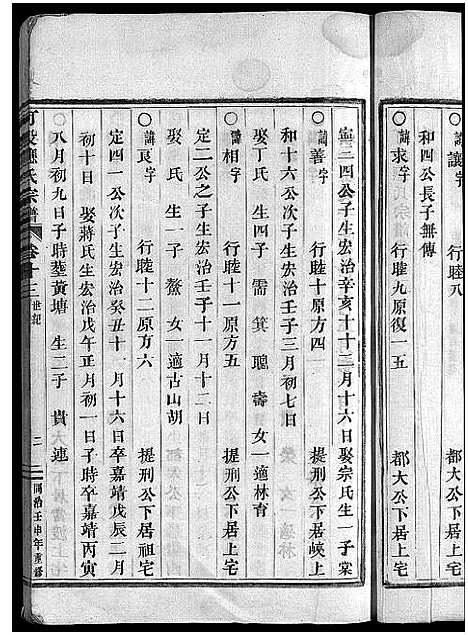 諱讓字 行睦八
和四公長子無傳
○諱求字 行睦九原復一五 都大公下居上宅
寗二四公子生宏治辛亥十二月十六日娶宗氏生一子棠
○諱善字 行睦十原方四 提刑公下居峽上
和十六公子生宏治壬子三月初七日
娶丁氏生四子 需 箕 聰 壽 女一適林育
○諱相字 行睦十一原方五 提刑公下居上宅
定二公之子生宏治壬子十一月十二日
娶 氏生一子 鰲 女一適古山胡
○諱良字 行睦十二原方六 提刑公下居祖宅
定四一公次子生宏治癸丑十一月十六日卒嘉靖戊辰二月
初十日 娶蔣氏生宏治戊午正月初一日子時卒嘉靖丙寅
八月初九日子時葬黃塘 生二子 貴 連
氏宗譜 卷十三 世紀 二 同治壬申年重修